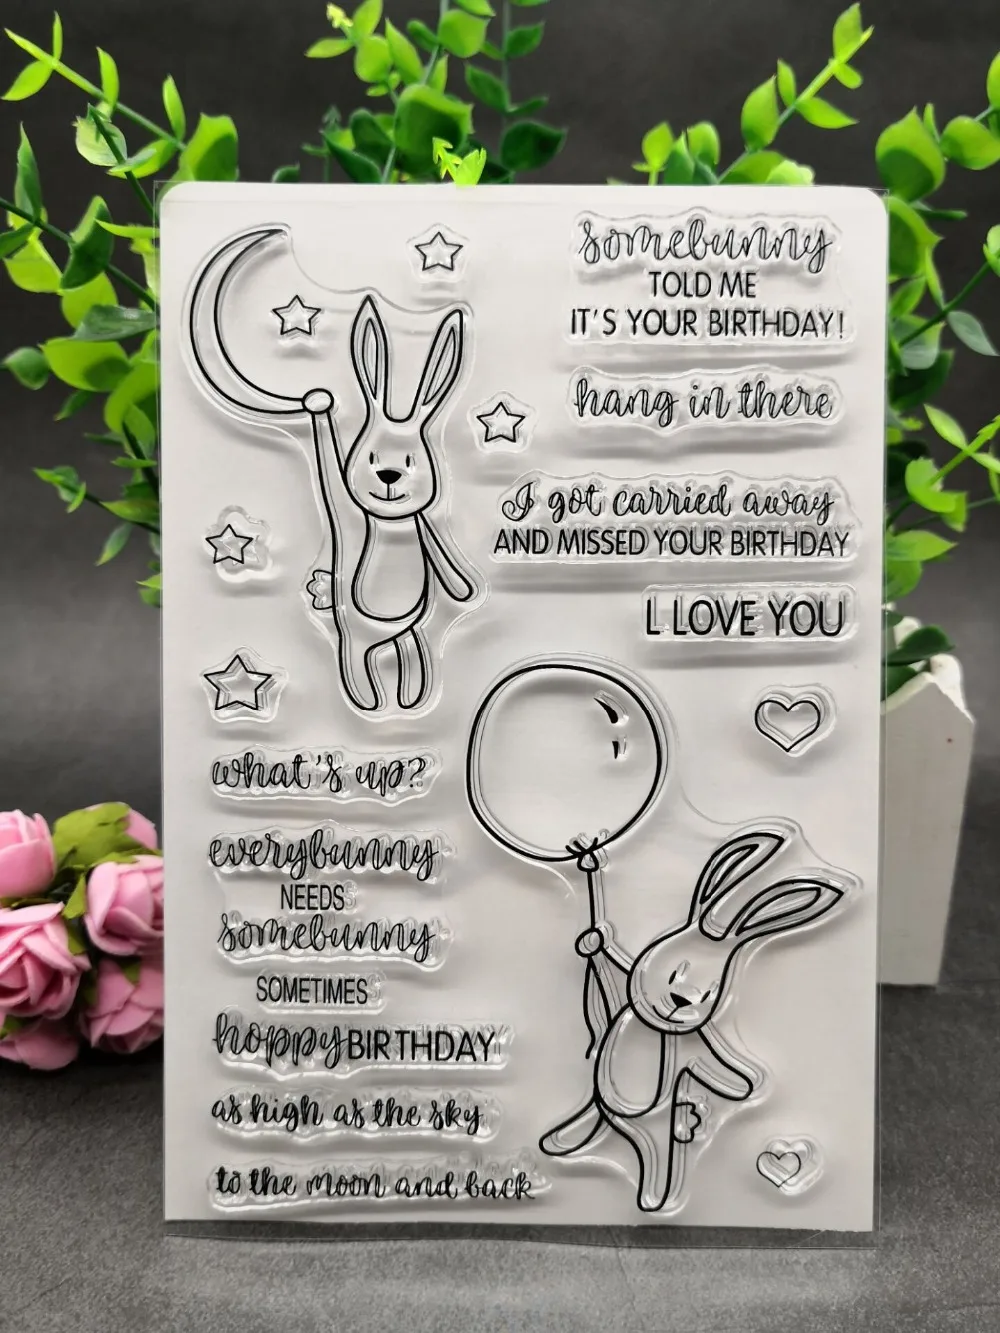 somebunny
TOLD ME
IT'S YOUR BIRTHDAY!
hang in there
I got carried away
AND MISSED YOUR BIRTHDAY
L LOVE YOU
what's up?
everybunny
NEEDS
somebunny
SOMETIMES
hoppy BIRTHDAY
as high as the sky
to the moon and back